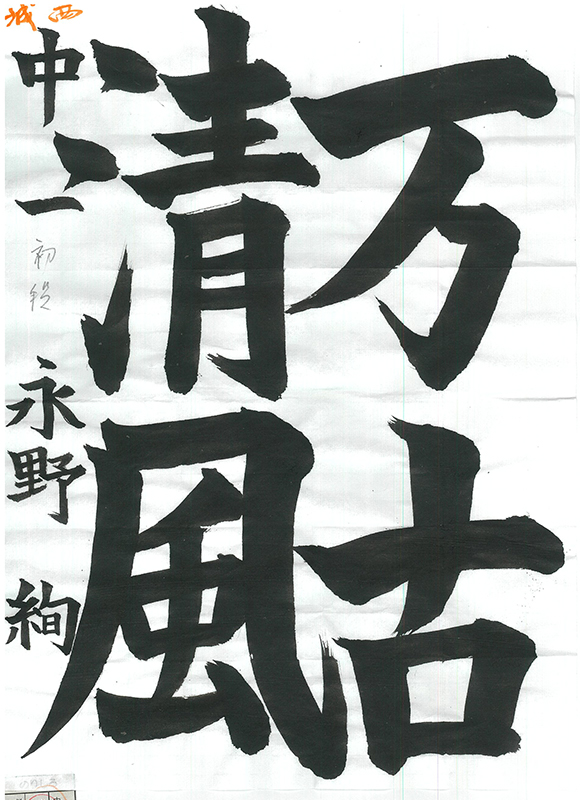 万古
清風
西城
中一
初段
永野 絢